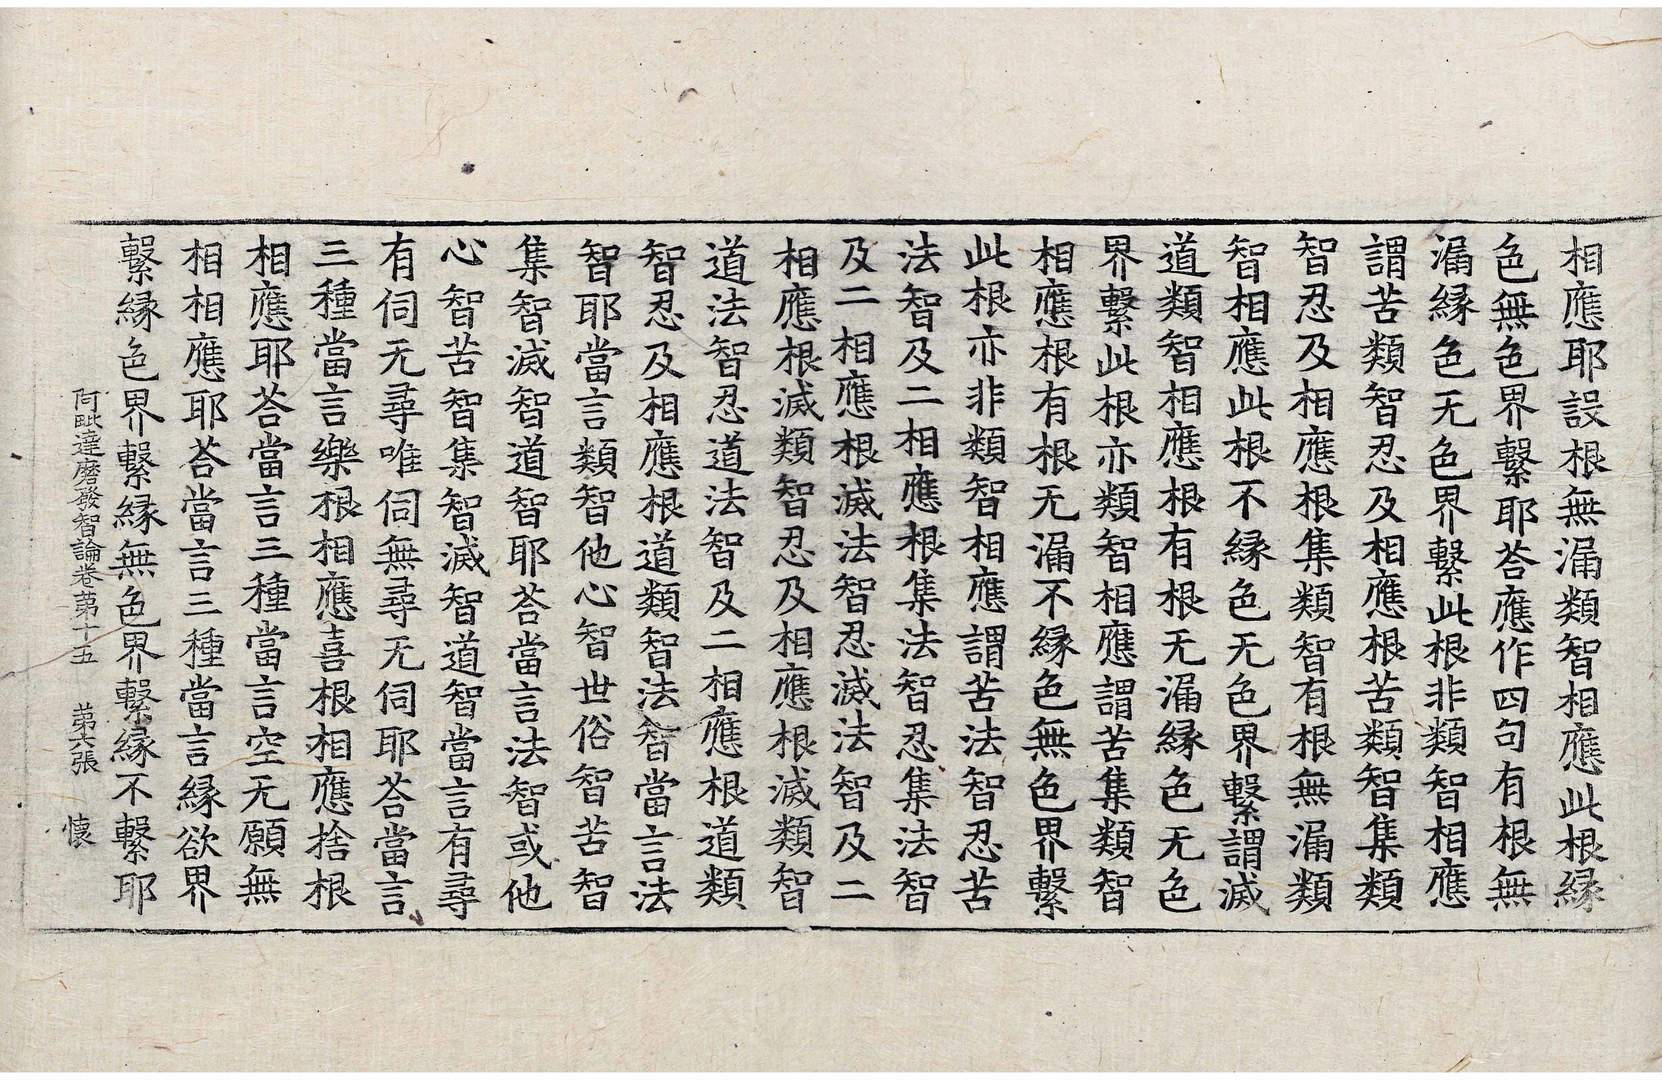 相應耶設根無漏類智相應此根緣
色無色界繫耶荅應作四句有根無
漏緣色无色界繫此根非類智相應
謂苦類智忍及相應根苦類智集類
智忍及相應根集類智有根無漏類
智相應此根不緣色无色界繫謂滅
道類智相應根有根无漏緣色无色
界繫此根亦類智相應謂苦集類智
相應根有根无漏不緣色無色界繫
此根亦非類智相應謂苦法智忍苦
法智及二相應根集法智忍集法智
及二相應根滅法智忍滅法智及二
相應根滅類智忍及相應根滅類智
道法智忍道法智及二相應根道類
智忍及相應根道類智法智當言法
智耶當言類智他心智世俗智苦智
集智滅智道智耶荅當言法智或他
心智苦智集智滅智道智當言有尋
有伺无尋唯伺無尋无伺耶荅當言
三種當言樂根相應喜根相應捨根
相應耶荅當言三種當言空无願無
相相應耶荅當言三種當言緣欲界
繫緣色界繫緣無色界繫緣不繫耶
阿毗達磨發智論卷第十五 第六張 懷